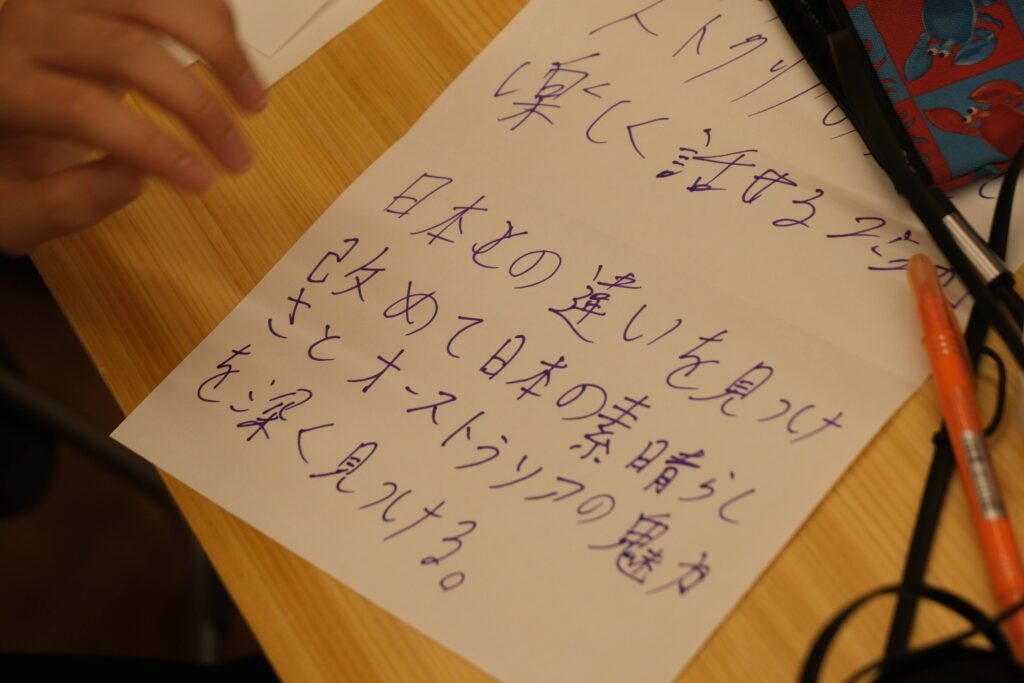 楽しく話せる
日本との違いを見つけ
改めて日本の素晴らし
さとオーストラリアの魅力
を深く見つける。